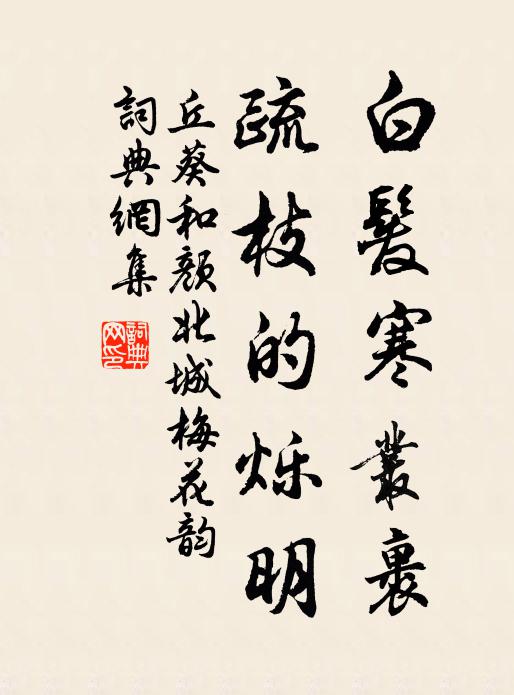 白髮寒叢裏
疏枝的烁明
丘葵和顏北城梅花韵
詞典網集
詞典
网印